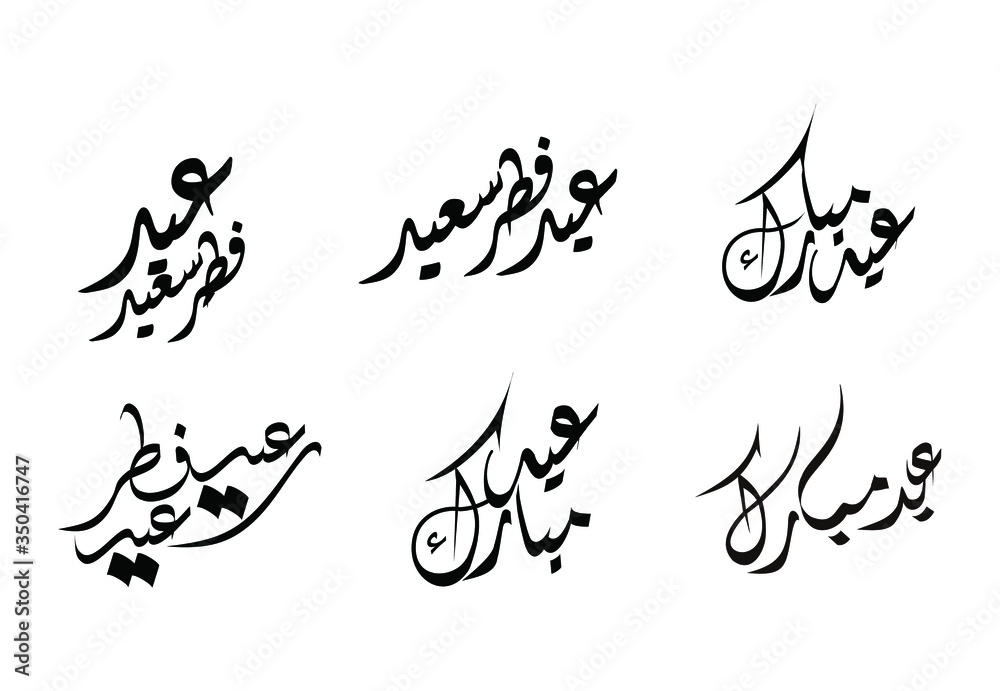 عيد
فطر سعيد
عيد فطر سعيد
عيد مبارك
عيد فطر
سعيد
عيد
مبارك
عيد مبارك
Adobe Stock | #350416747